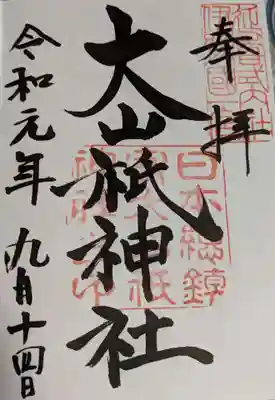 奉拝
大山祇神社
令和元年 九月十四日
日本總鎮